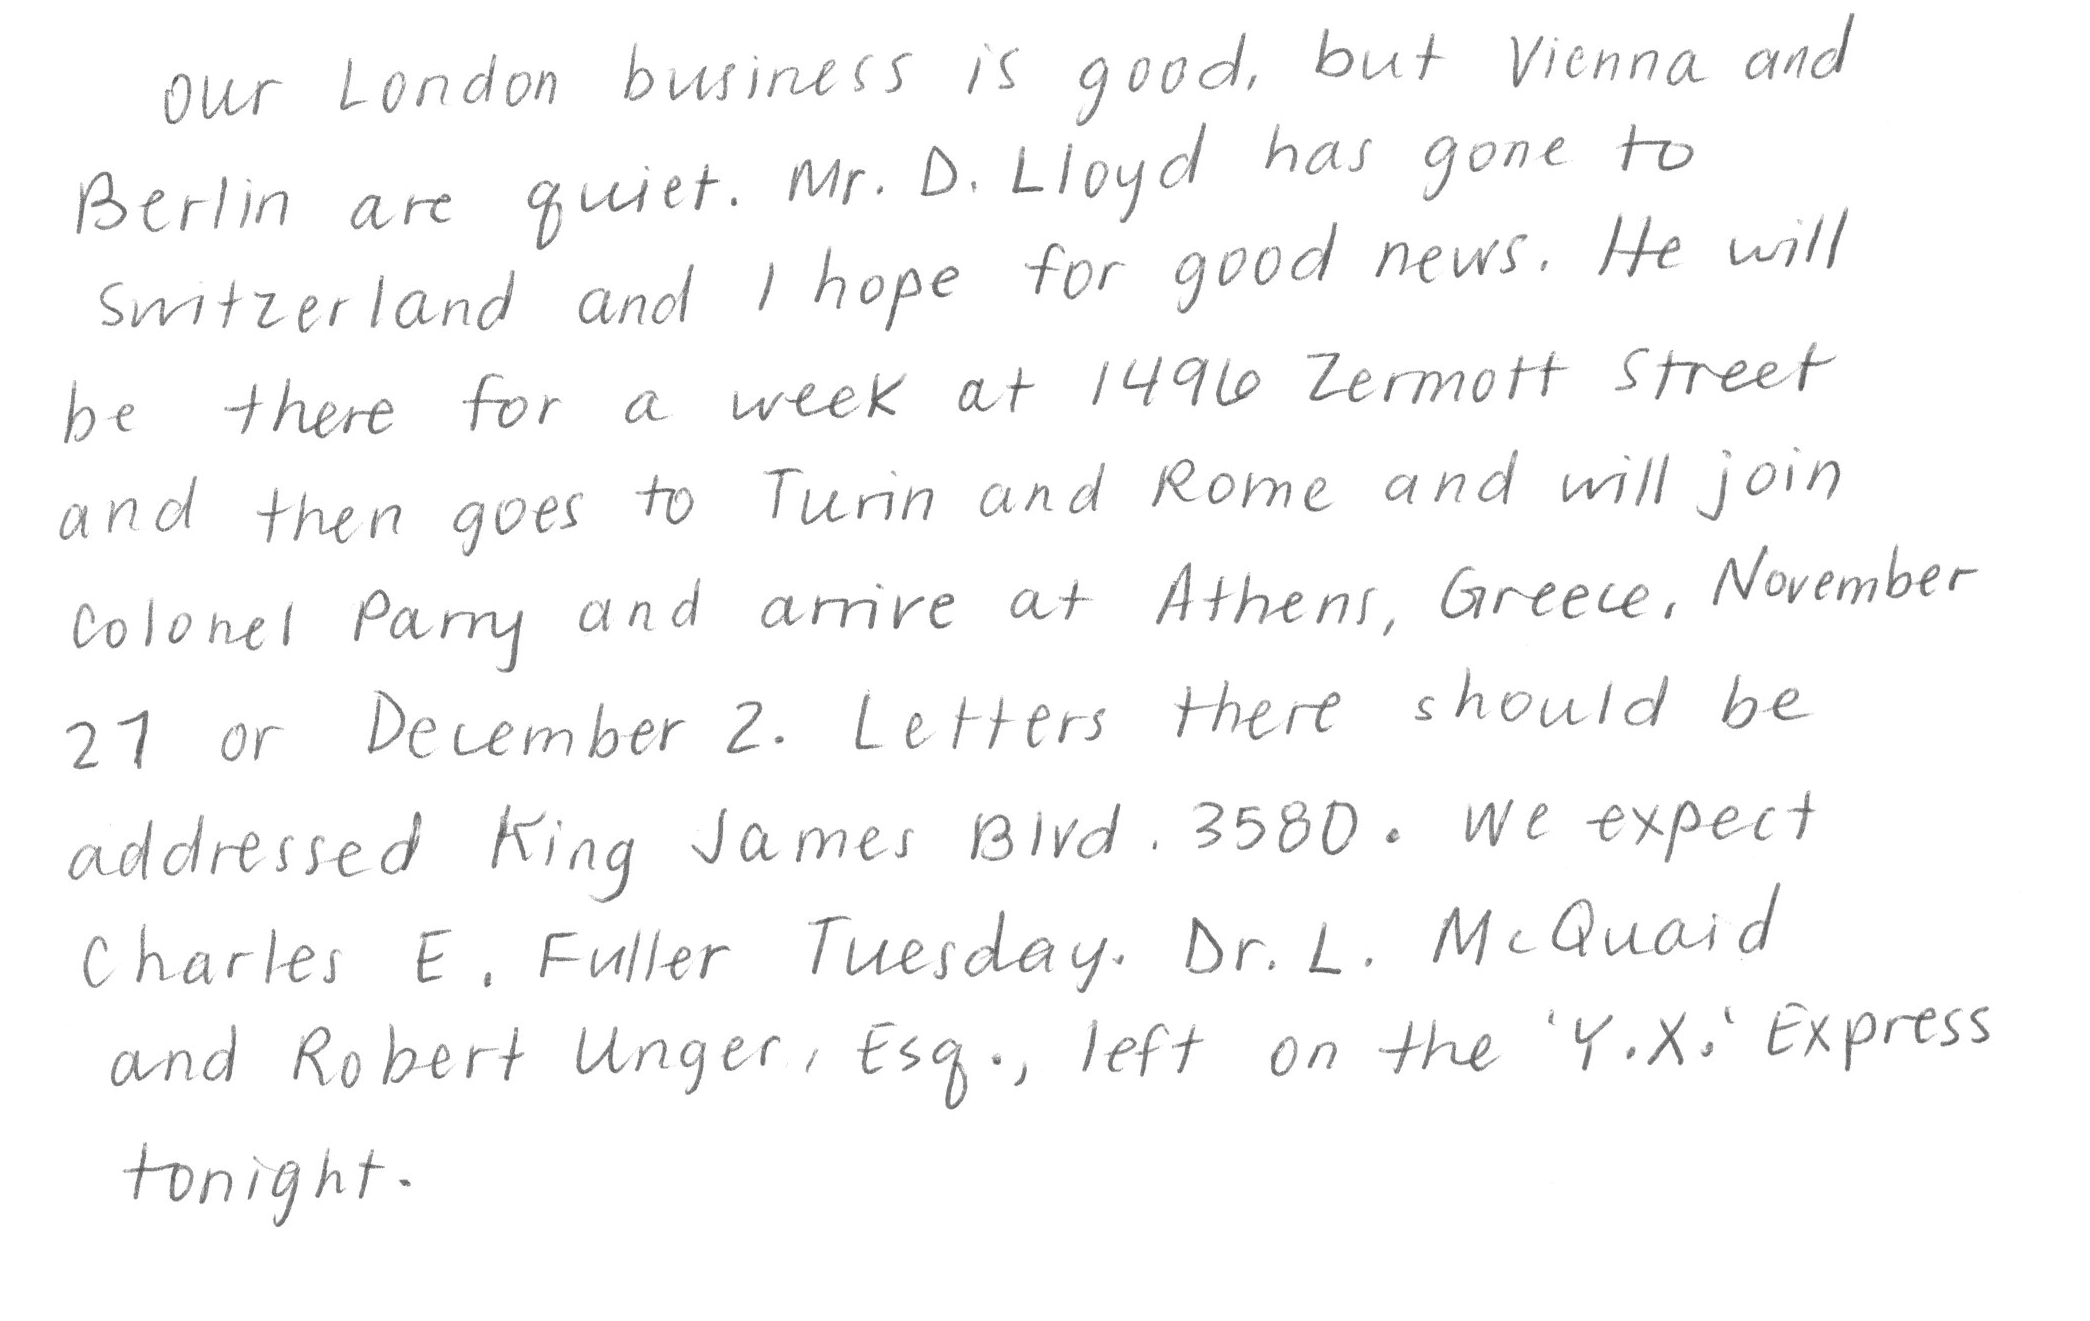 our London business is good, but Vienna and
Berlin are quiet. Mr. D. Lloyd has gone to
Switzerland and I hope for good news. He will
be there for a week at 1496 Zermott Street
and then goes to Turin and Rome and will join
Colonel Parry and arrive at Athens, Greece, November
27 or December 2. Letters there should be
addressed King James Blvd. 3580. We expect
Charles E. Fuller Tuesday. Dr. L. McQuaid
and Robert Unger, Esq., left on the 'Y.X.' Express
tonight.